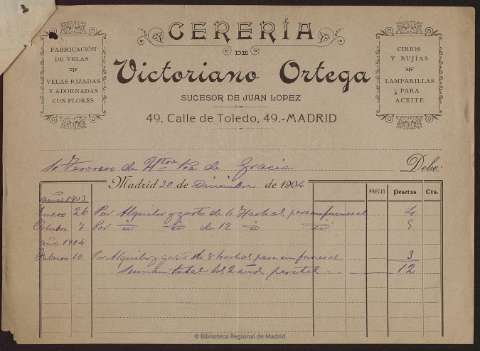 CERERÍA
DE
Victoriano Ortega
SUCESOR DE JUAN LOPEZ
49, Calle de Toledo, 49.-MADRID
FABRICACIÓN
DE VELAS
VELAS RIZADAS
Y ADORNADAS
CON FLORES
CIRIOS
Y BUJÍAS
LAMPARILLAS
PARA
ACEITE
de Gracia Debe
Madrid 20 de Diciembre de 1904
Pesetas Cts.
Enero 26 Por Alquiler y gasto de 6 hachas para un funeral 4
Octubre 7 Por de 12
año 1904
Febrero 10 Por Alquiler y gasto de 8 hachas para un funeral 3
Suman total 12
© Biblioteca Regional de Madrid